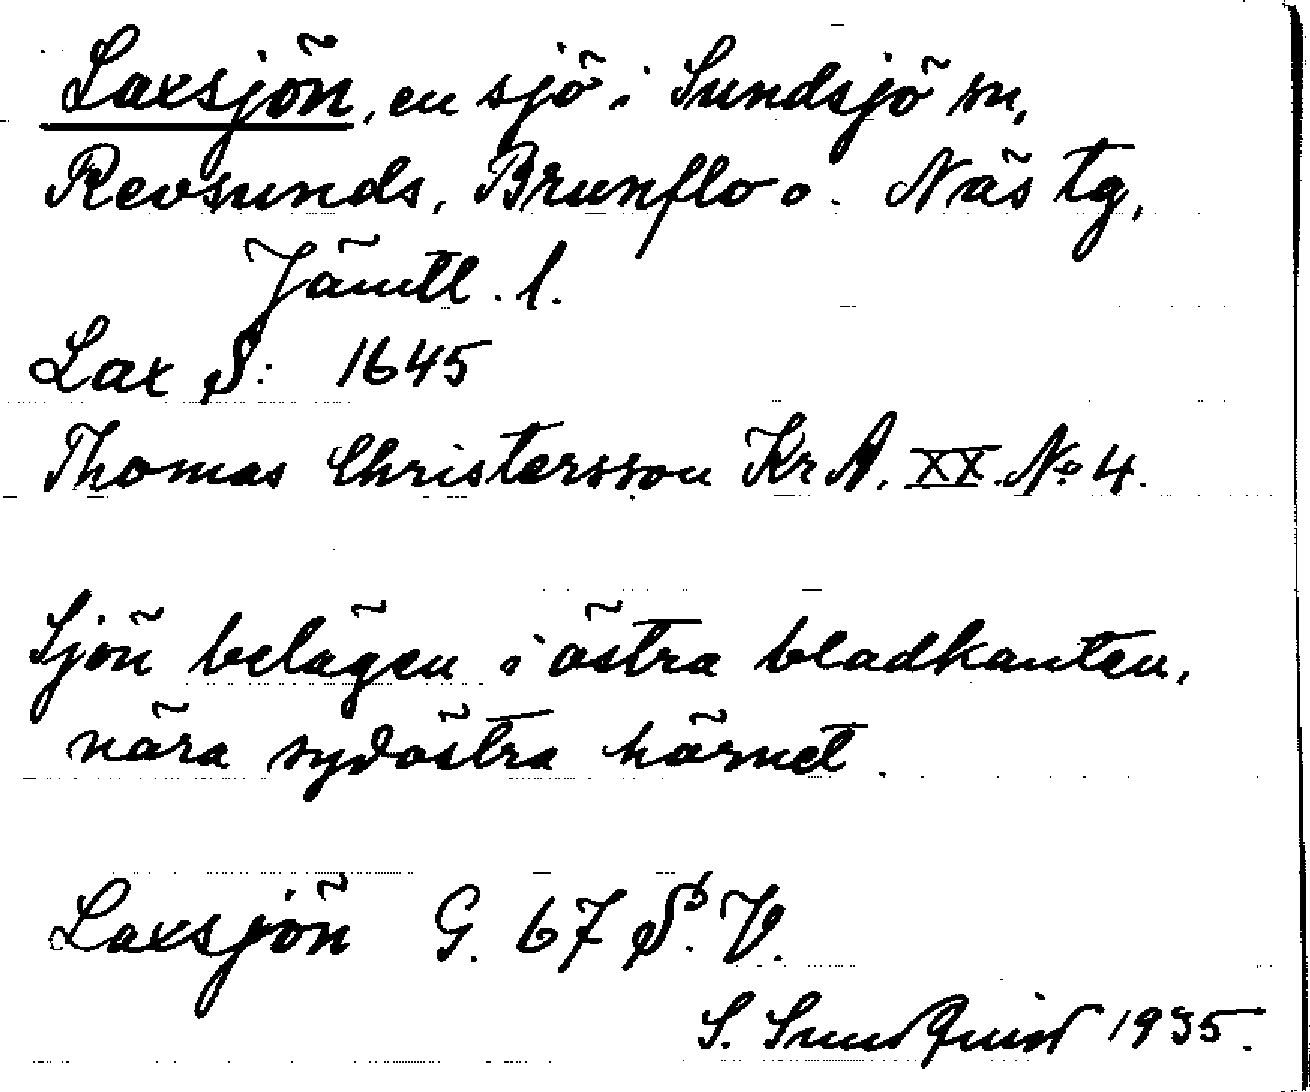 Laxsjön, en sjö i Sundsjö sn,
Revsunds, Brunflo o. Näs tg,
Jämtl. l.
Lax S: 1645
Thomas Christersson Kr A. XX. No 4.
Sjön belägen i östra bladkanten,
nära sydöstra hörnet.
Laxsjön G. 67 S. V.
S. Sundquist 1935.